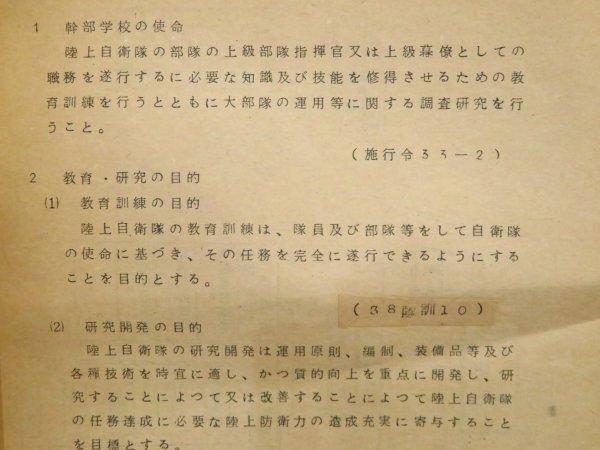 1 幹部学校の使命
陸上自衛隊の部隊の上級部隊指揮官又は上級幕僚としての
職務を遂行するに必要な知識及び技能を修得させるための教
育訓練を行うとともに大部隊の運用等に関する調査研究を行
うこと。
(施行令33-2)
2 教育・研究の目的
(1) 教育訓練の目的
陸上自衛隊の教育訓練は、隊員及び部隊等をして自衛隊
の使命に基づき、その任務を完全に遂行できるようにする
ことを目的とする。
(38陸訓10)
(2) 研究開発の目的
陸上自衛隊の研究開発は運用原則、編制、装備品等及び
各種技術を時宜に適し、かつ質的向上を重点に開発し、研
究することによつて又は改善することによつて陸上自衛隊
の任務達成に必要な陸上防衛力の造成充実に寄与すること
を目標とする。